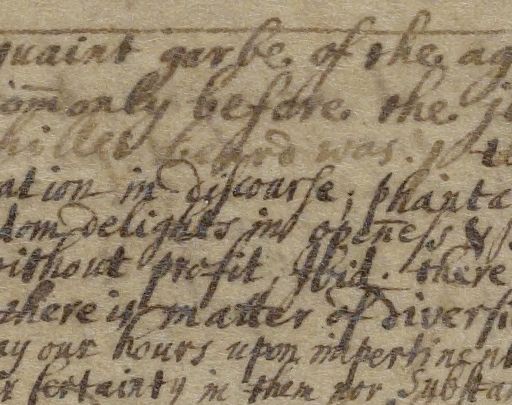 quaint garbe of the ag
com̄only before the je
was. te
ation in discourse; phanta
dom delights in openess &
without profit, Ibid. there
there is matter of diversi
ay our hours upon impertinent
certainty in them nor Substan